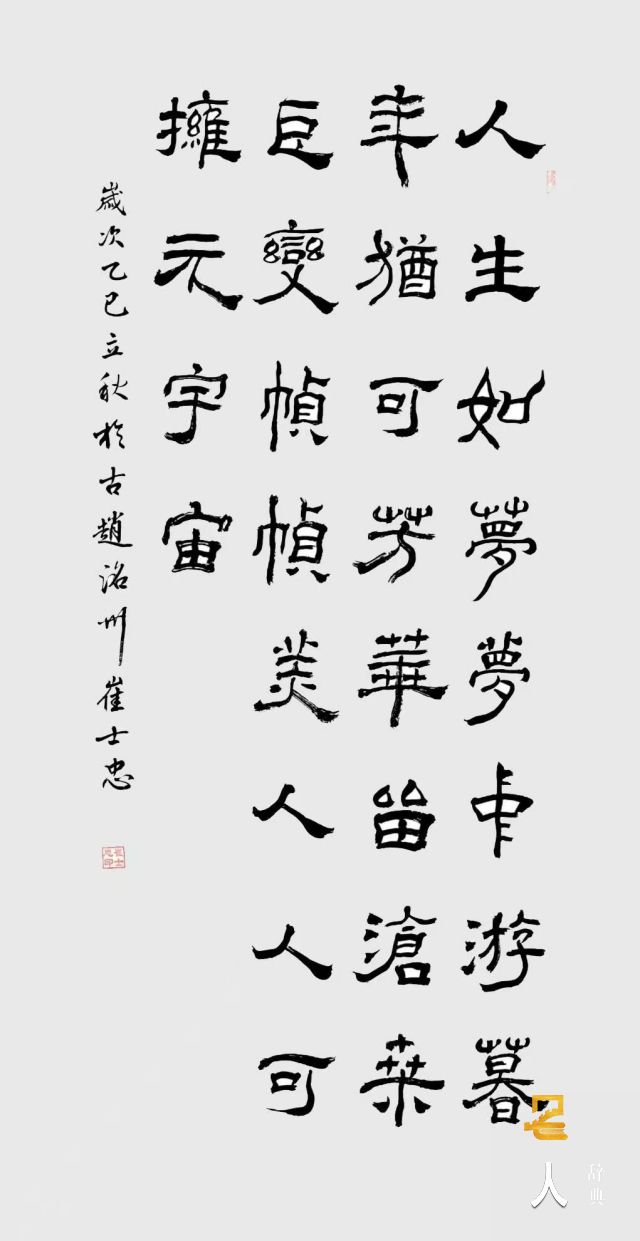 人生如夢夢中游暮
年猶可芳華留滄桑
巨變幀幀美人人可
擁元宇宙
歲次乙巳立秋於古趙洺州崔士忠
崔士忠印
名人
辞典